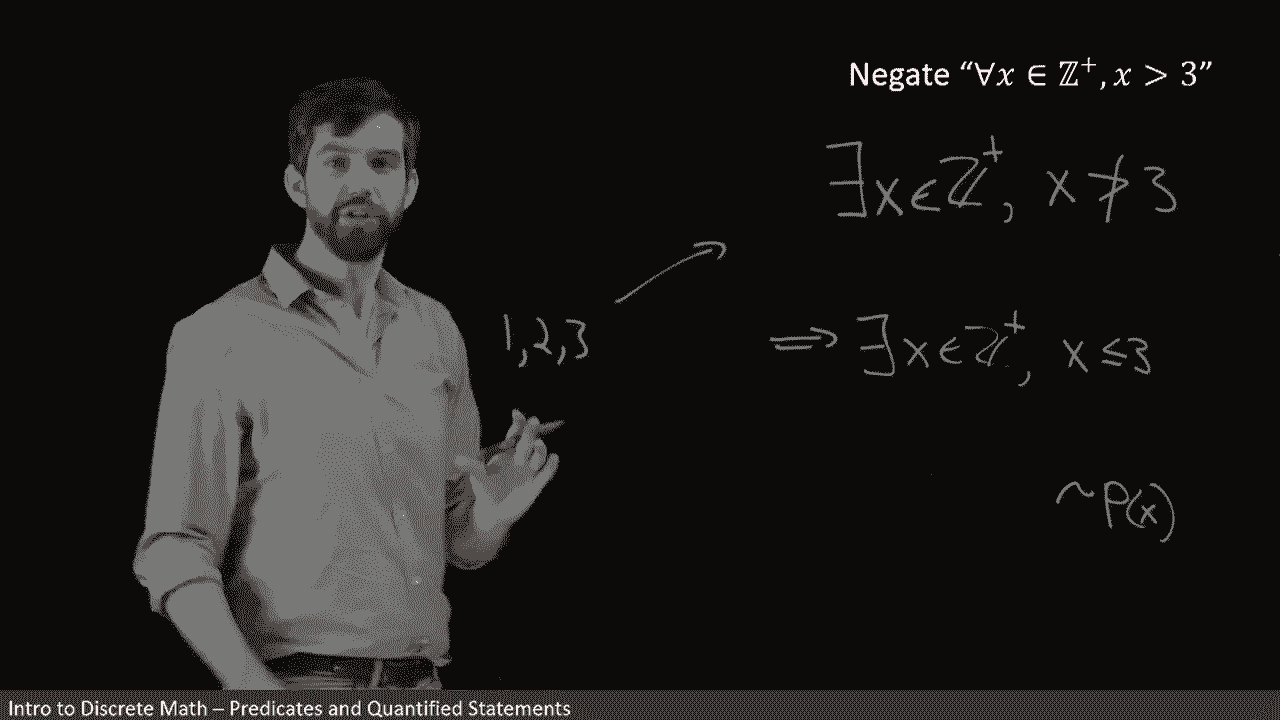 Negate “∀x ∈ ℤ⁺, x > 3”
∃x∈ℤ⁺, x ≯ 3
1,2,3
⟹ ∃x∈ℤ⁺, x ≤ 3
~P(x)
Intro to Discrete Math – Predicates and Quantified Statements